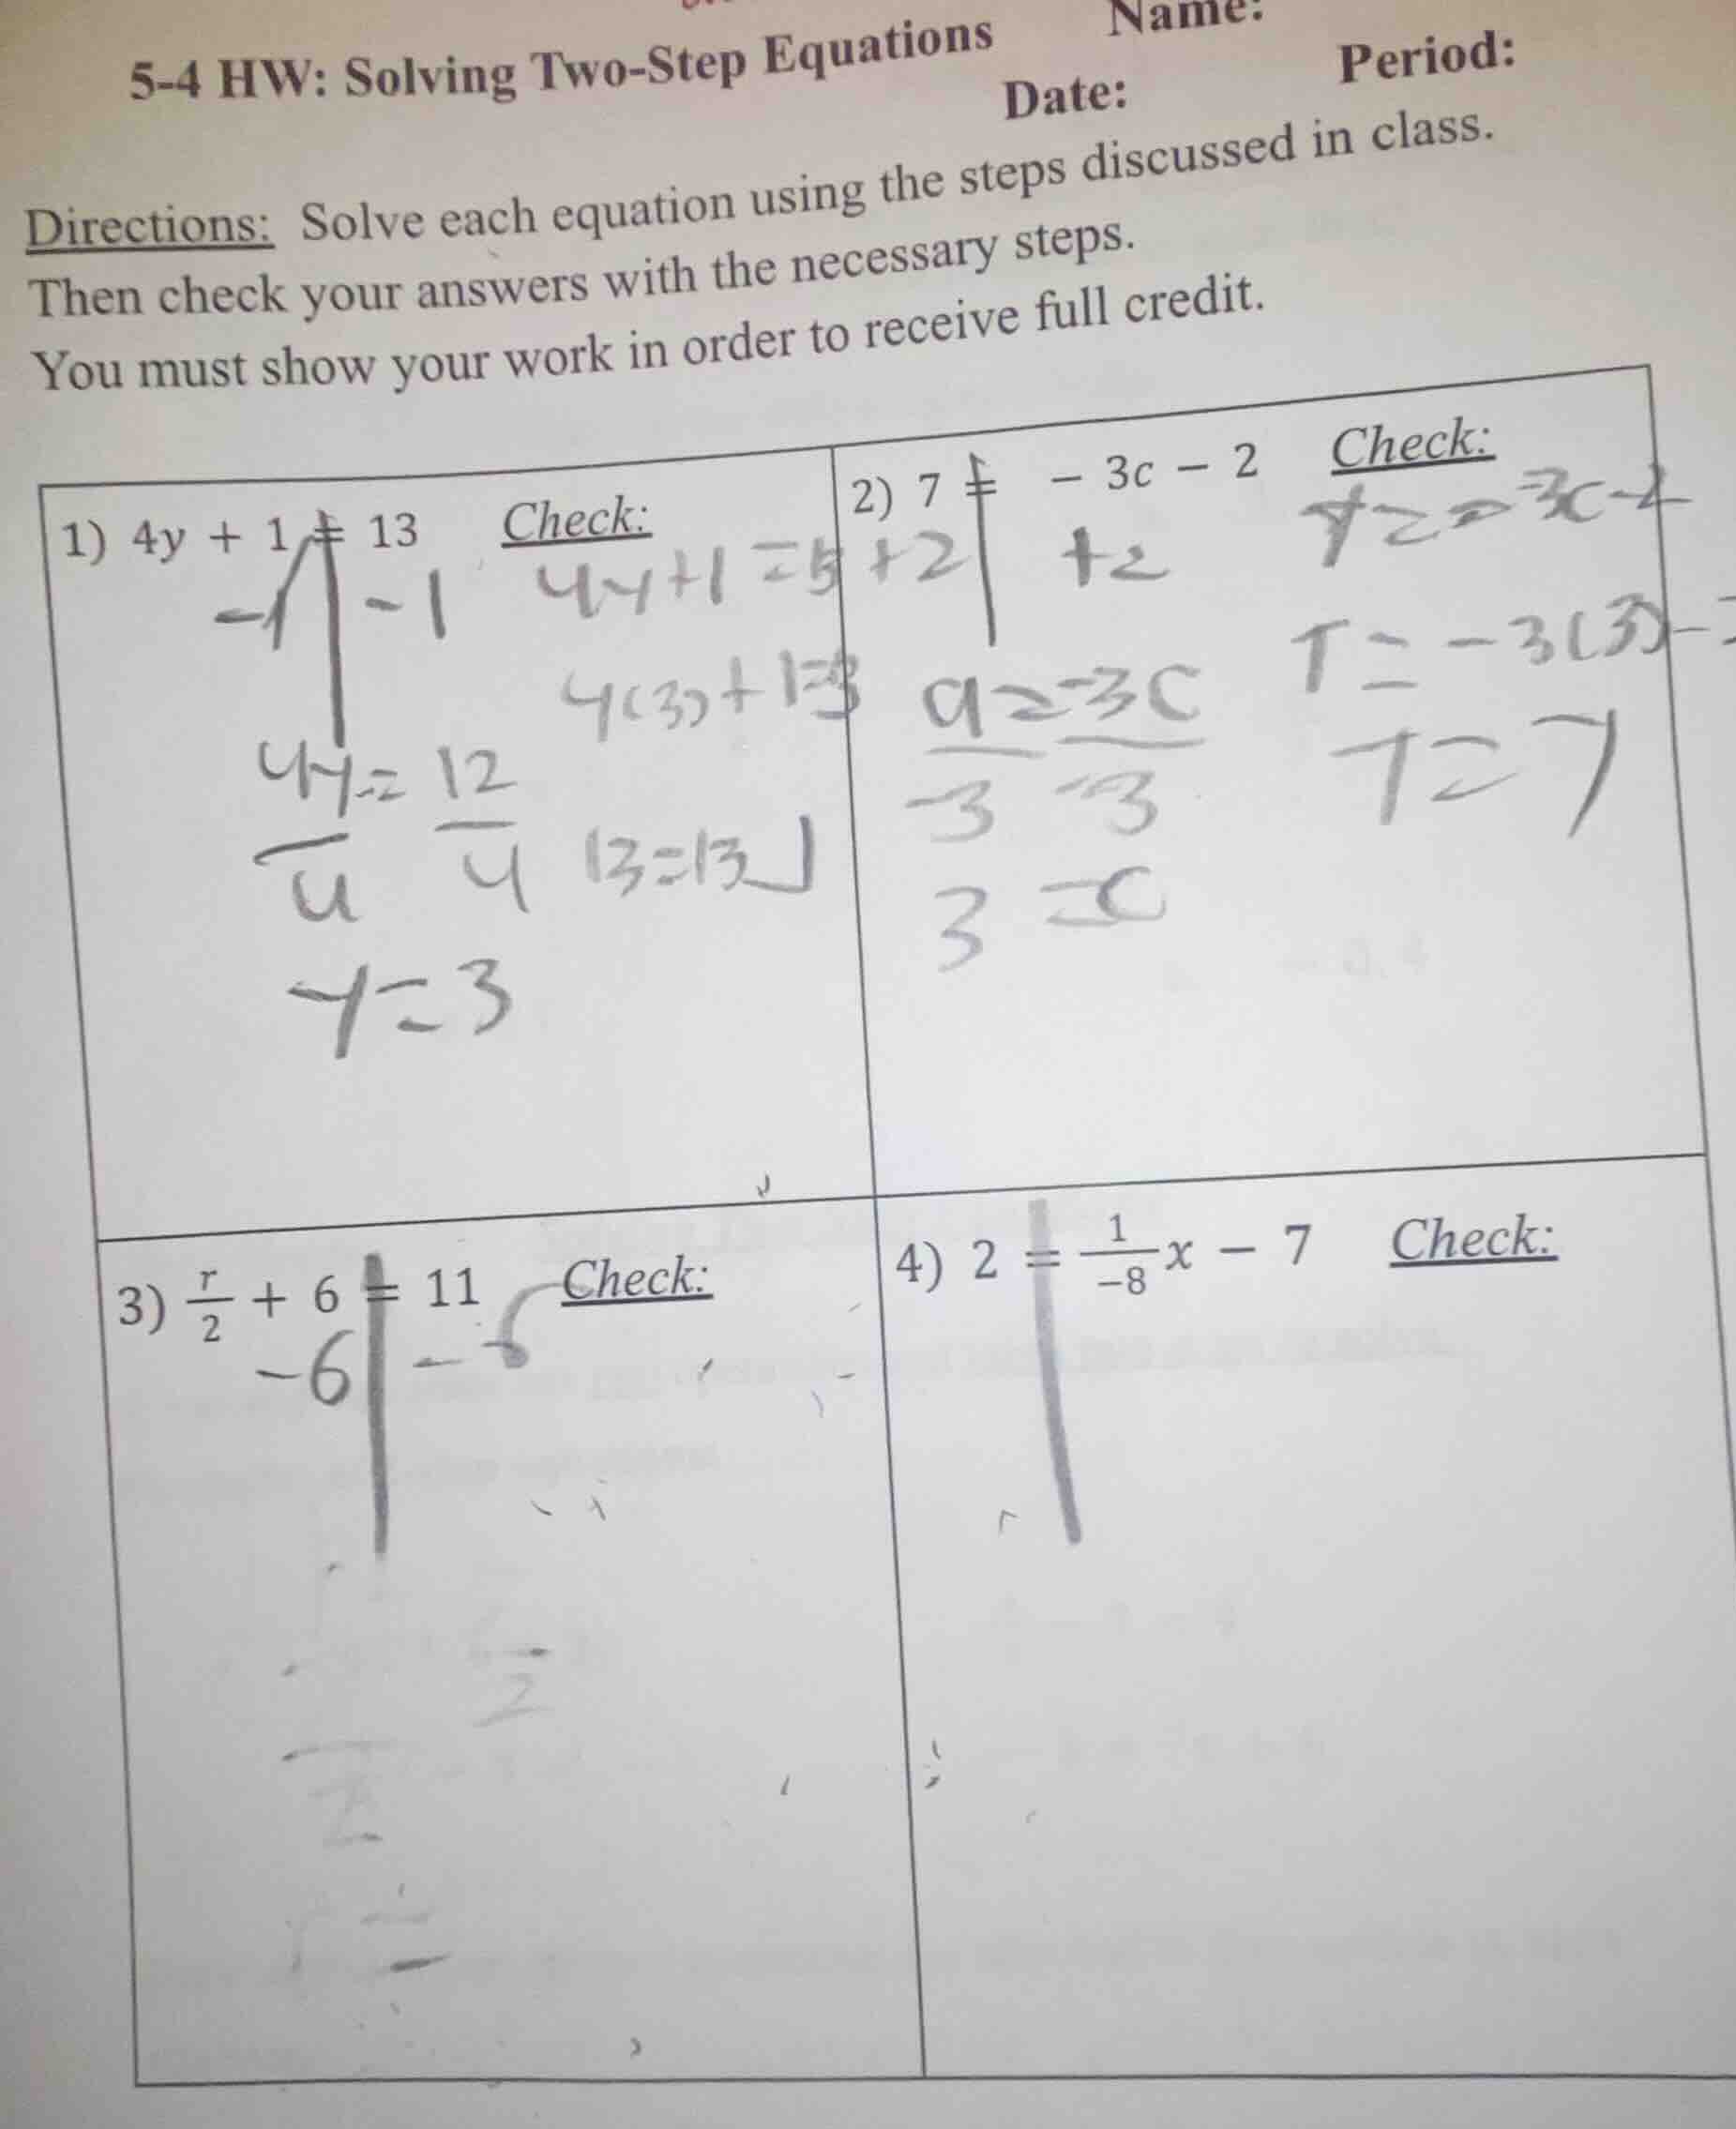 5-4 HW: Solving Two-Step Equations
Name:
Date:
Period:
Directions: Solve each equation using the steps discussed in class.
Then check your answers with the necessary steps.
You must show your work in order to receive full credit.
1) 4y + 1 = 13 Check:
-1 -1
4y+1=
4(3)+1=
4y= 12
4 4
13=13
y=3
2) 7 = - 3c - 2 Check:
+2 +2
7 = -3c-2
7 = -3(3)-
9=-3c
-3 -3
7=7
3 =c
3) r/2 + 6 = 11 Check:
-6 -
2
2
r =
4) 2 = 1/-8 x - 7 Check: